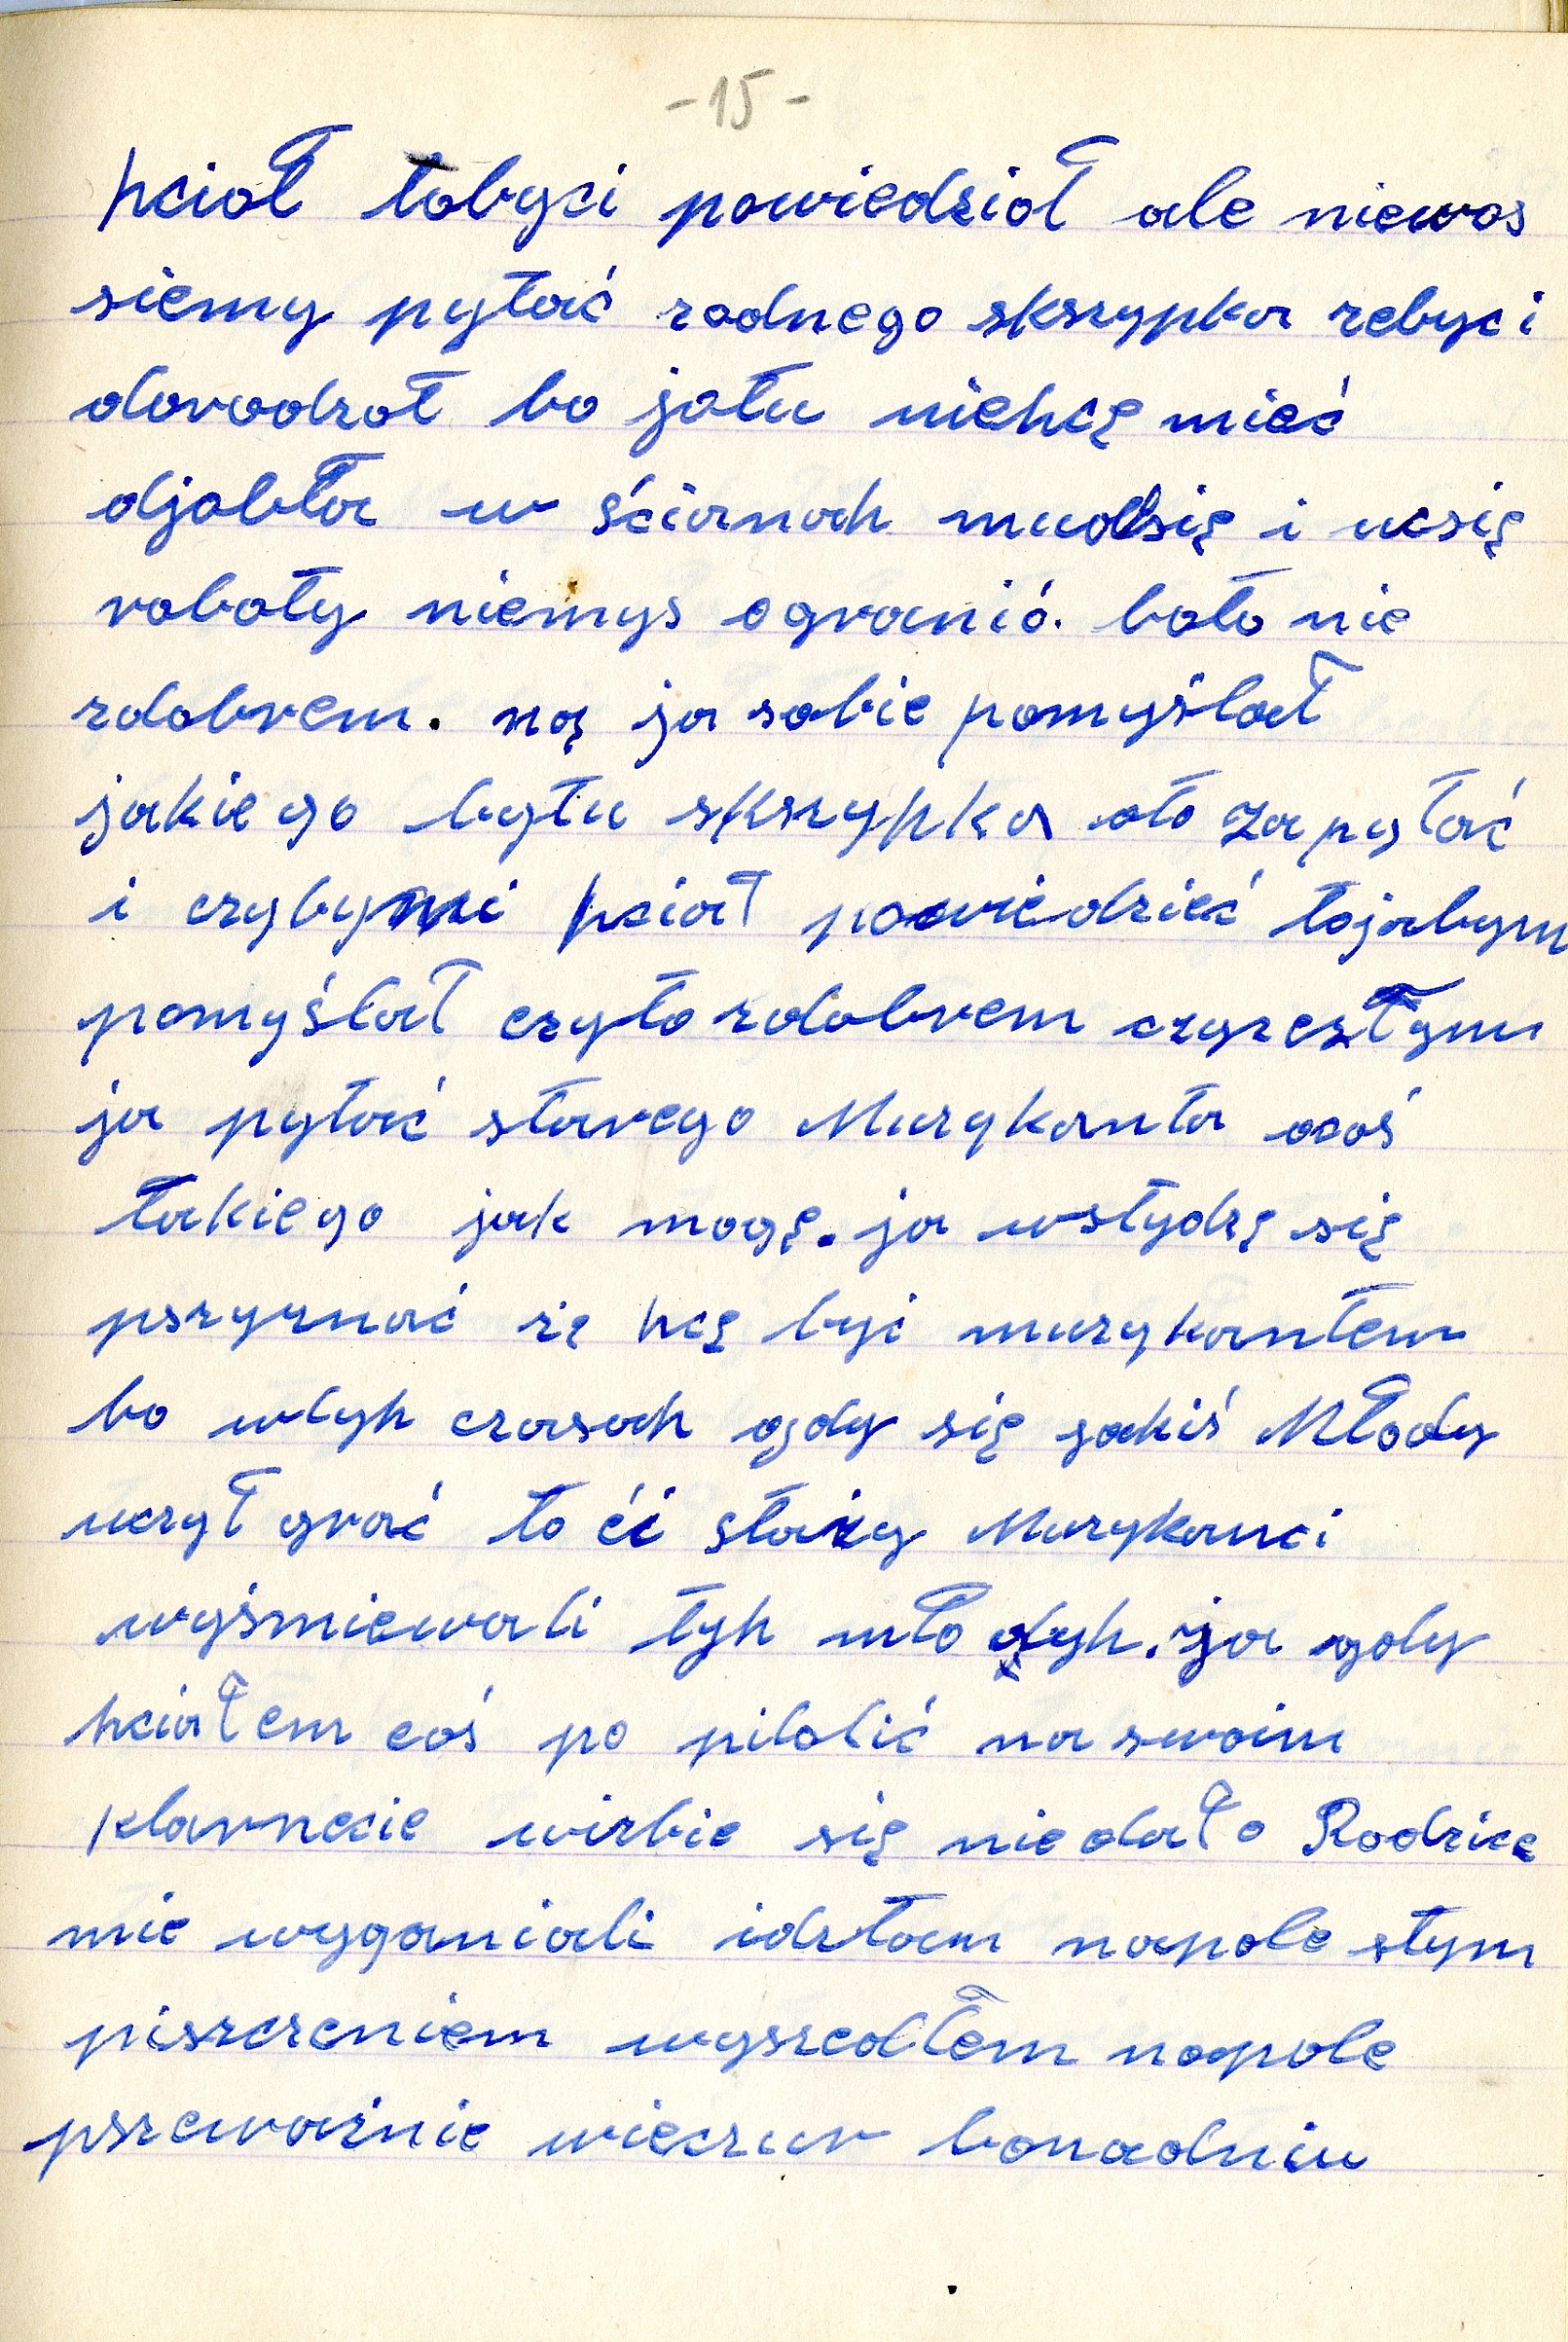 -15-
hcioł tobyci powiedzioł ale niewos
siemy pytać zadnego skszypka zebyci
doradzoł bo jatu niehcę mieć
djobła w ścianach mudlsię i ucsię
roboty niemys o granió. boto nie
zdobrem. ną ja sobie pomyślał
jakiego bytu skszypka oto zapytać
i czybymi hciał powiedzieć tojabym
pomyślał czyto zdobrem czyzeztym
ja pytać starego Muzykanta ocoś
takiego jak mogę. ja wstydzę się
pszyznać rzę hcę być muzykantem
bo wtyh czasach gdy się jakiś Młody
uczył grać to ći stazy Muzykanci
wyśmiewali tyh mło dyh. ja gdy
hciałem coś po pilolić na swoim
klarnecie wizbie się nie dało Rodzice
mie wyganiali idztam napole stym
piszczeniem wyszedłem napole
pszeważnie wieczur bonadniu